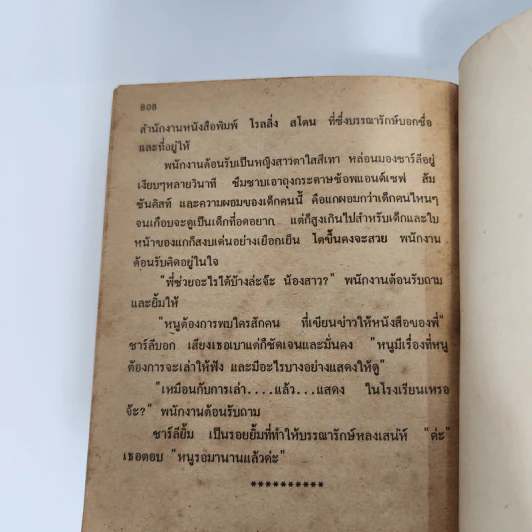 808
สำนักงานหนังสือพิมพ์ โรลลิ่ง สโตน ที่ซึ่งบรรณารักษ์บอกชื่อ
และที่อยู่ให้
พนักงานต้อนรับเป็นหญิงสาวตาใสสีเทา หล่อนมองชาร์ลีอยู่
เงียบๆหลายวินาที ซึมซาบเอาถุงกระดาษช้อพแอนด์เซฟ ส้ม
ชันคิสท์ และความผอมของเด็กคนนี้ คือแกผอมกว่าเด็กคนไหนๆ
จนเกือบจะดูเป็นเด็กที่อดอยาก แต่ก็สูงเกินไปสำหรับเด็กและใบ
หน้าของแกก็สงบเด่นอย่างเยือกเย็น โตขึ้นคงจะสวย พนักงาน
ต้อนรับคิดอยู่ในใจ
"พี่ช่วยอะไรได้บ้างล่ะจ๊ะ น้องสาว?" พนักงานต้อนรับถาม
และยิ้มให้
"หนูต้องการพบใครสักคน ที่เขียนข่าวให้หนังสือของพี่"
ชาร์ลีบอก เสียงเธอเบาแต่ก็ชัดเจนและมั่นคง "หนูมีเรื่องที่หนู
ต้องการจะเล่าให้ฟัง และมีอะไรบางอย่างแสดงให้ดู"
"เหมือนกับการเล่า....แล้ว...แสดง ในโรงเรียนเหรอ
จ๊ะ?" พนักงานต้อนรับถาม
ชาร์ลียิ้ม เป็นรอยยิ้มที่ทำให้บรรณารักษ์หลงเสน่ห์ "ค่ะ"
เธอตอบ "หนูรอมานานแล้วค่ะ"
**********